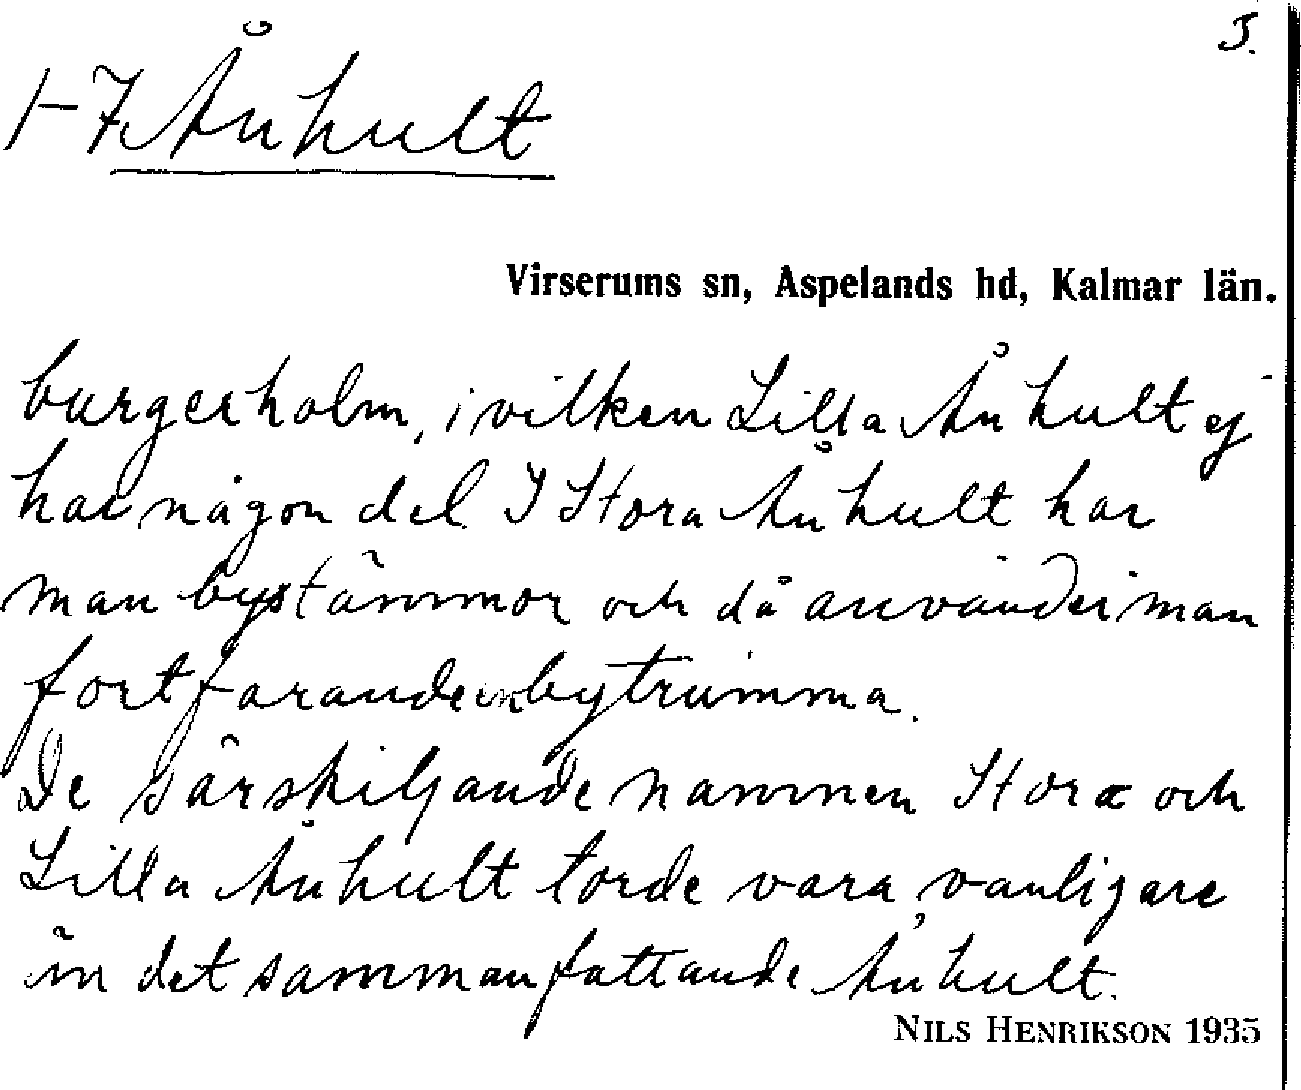 3.
1-7 Ånhult
Virserums sn, Aspelands hd, Kalmar län.
burgerholm, i vilken Lilla Ånhult ej
har någon del. I Stora Ånhult har
man bystämmor och då använder man
fortfarande en bytrumma.
De särskiljande namnen Stora och
Lilla Ånhult torde vara vanligare
än det sammanfattande Ånhult.
NILS HENRIKSON 1935